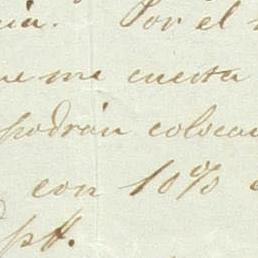 cia. Por el
ue me cuesta
podrán colocar
con 10%
pff.